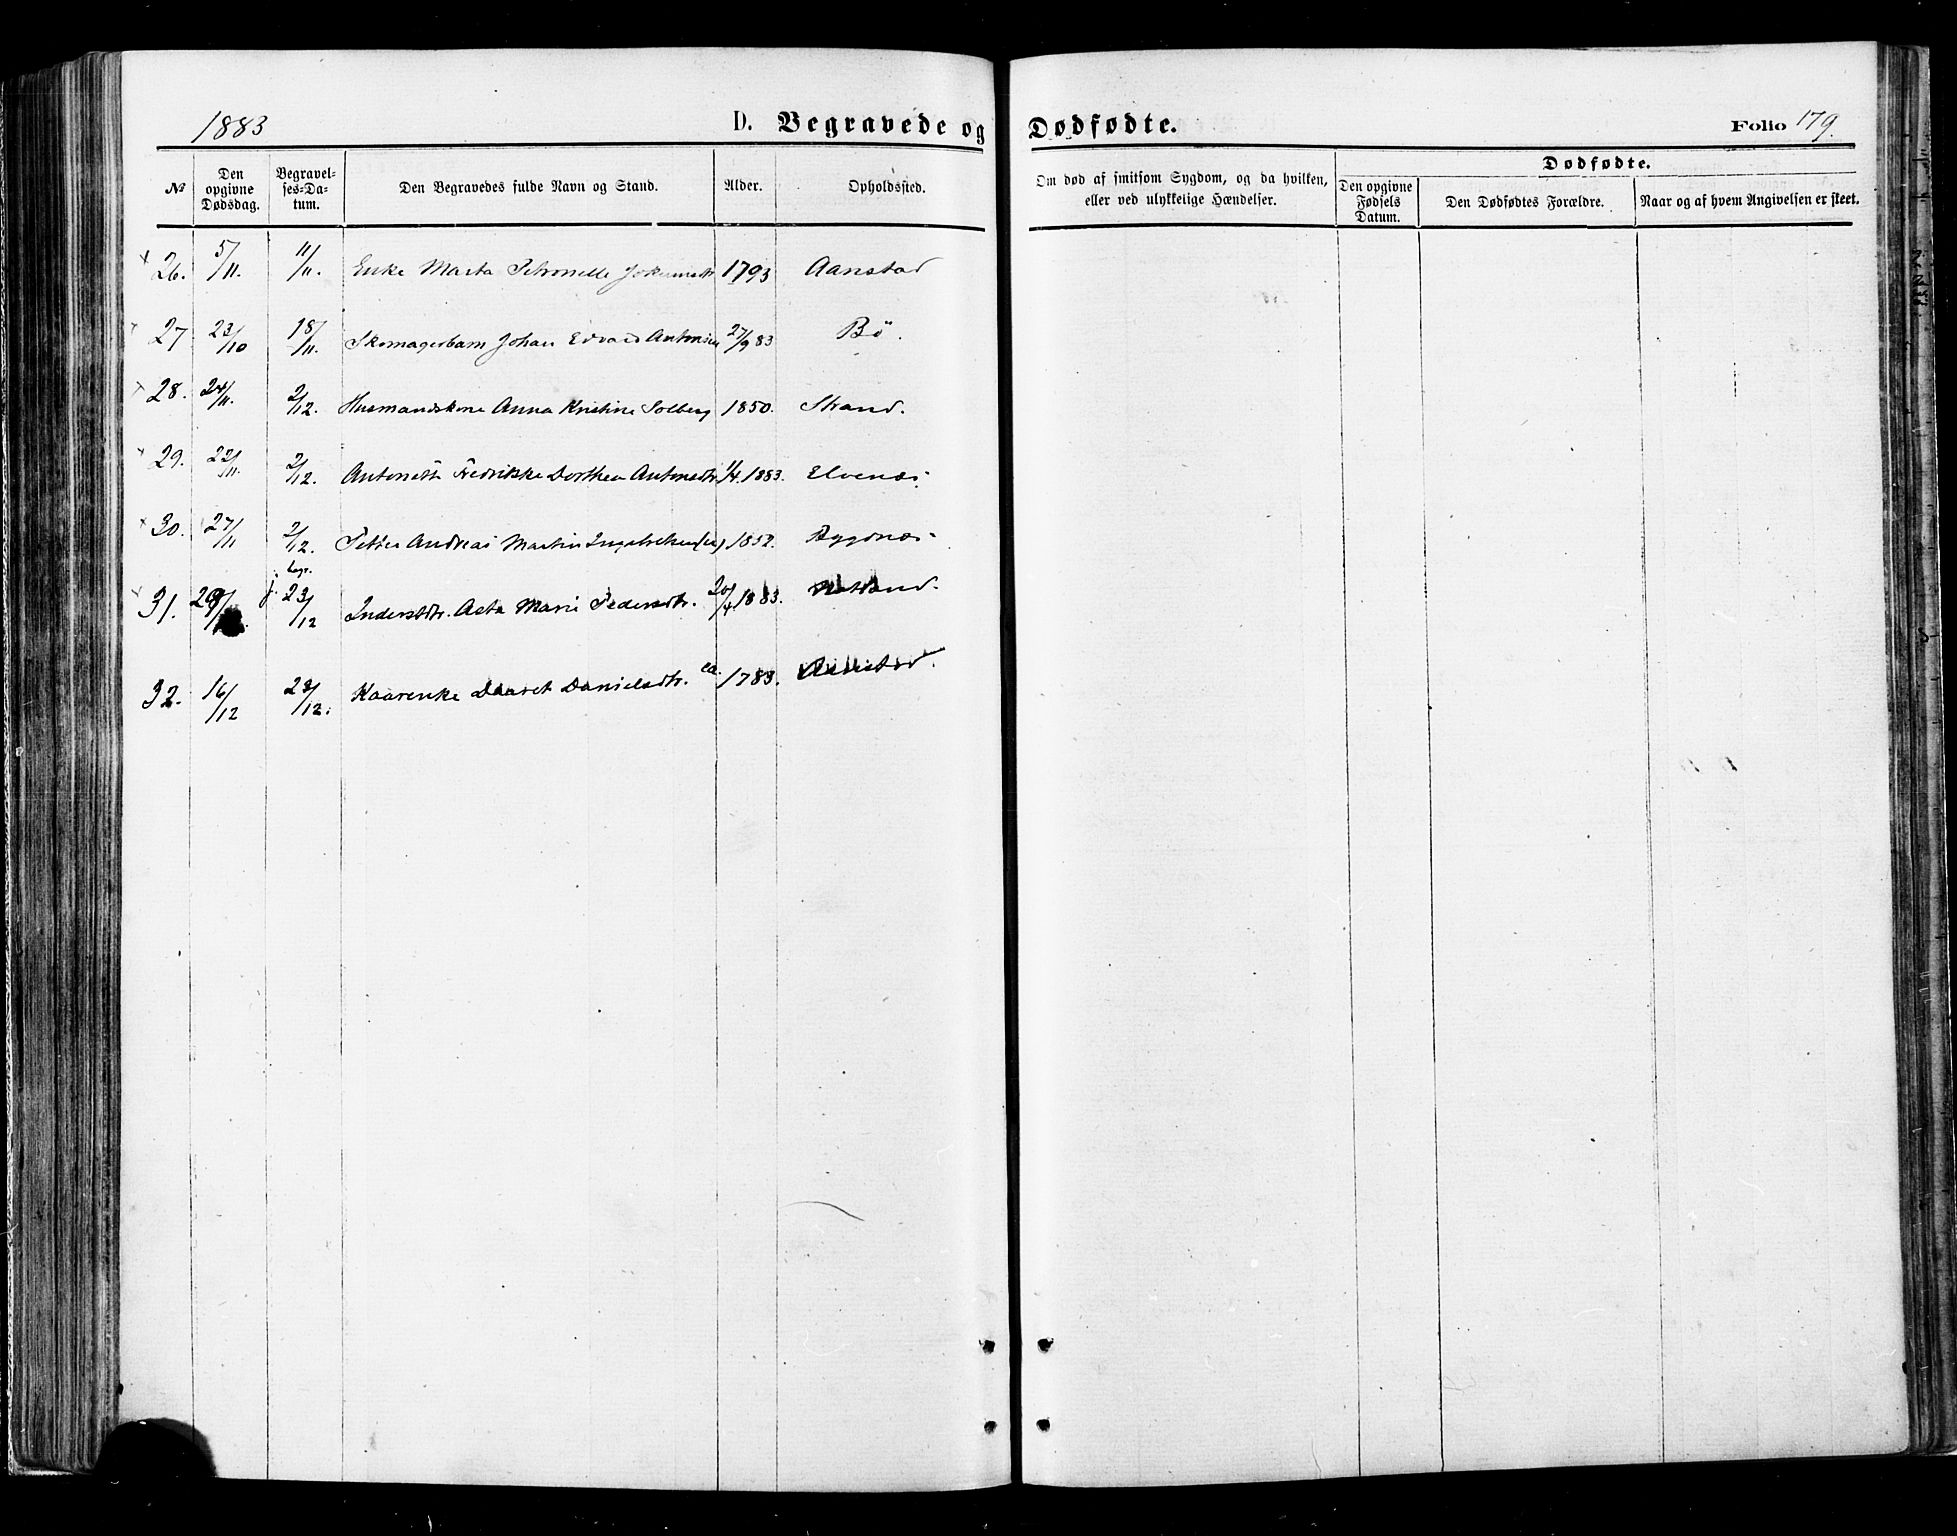 1883 D. Begravede og Dødfødte. Folio 179.
№ Den opgivne Dødsdag. Begravelses-Datum. Den Begravedes fulde Navn og Stand. Alder. Opholdssted. Om død af smitsom Sygdom, og da hvilken, eller ved ulykkelige Hændelser. Dødfødte. Den opgivne Fødsels Datum. Den Dødfødtes Forældre. Naar og af hvem Angivelsen er skeet.
26. 5/11. 11/11. Enke Marta Petronelle 1793 Aanstad
27 23/10 18/11. Skomagerbarn Johan Edvard Antonsen 27/9 83 Bö.
28. 24/11. 2/12. Husmandskone Anna Kristine Solberg 1850. Strand.
29. 22/11. 2/12. Fredrikke Dorthea Antonsdtr. 1/4. 1883. Elvenæs
30. 27/11 2/12. Petter Andreas Martin 1852.
31. 29/ j. begr. 23/12 Inderstdtr. Asta Marie Pedersdtr. 20/4 1883.
32. 16/12 23/12. Kaarenke Daaret Danielsdtr. ca. 1783. Aanstad.